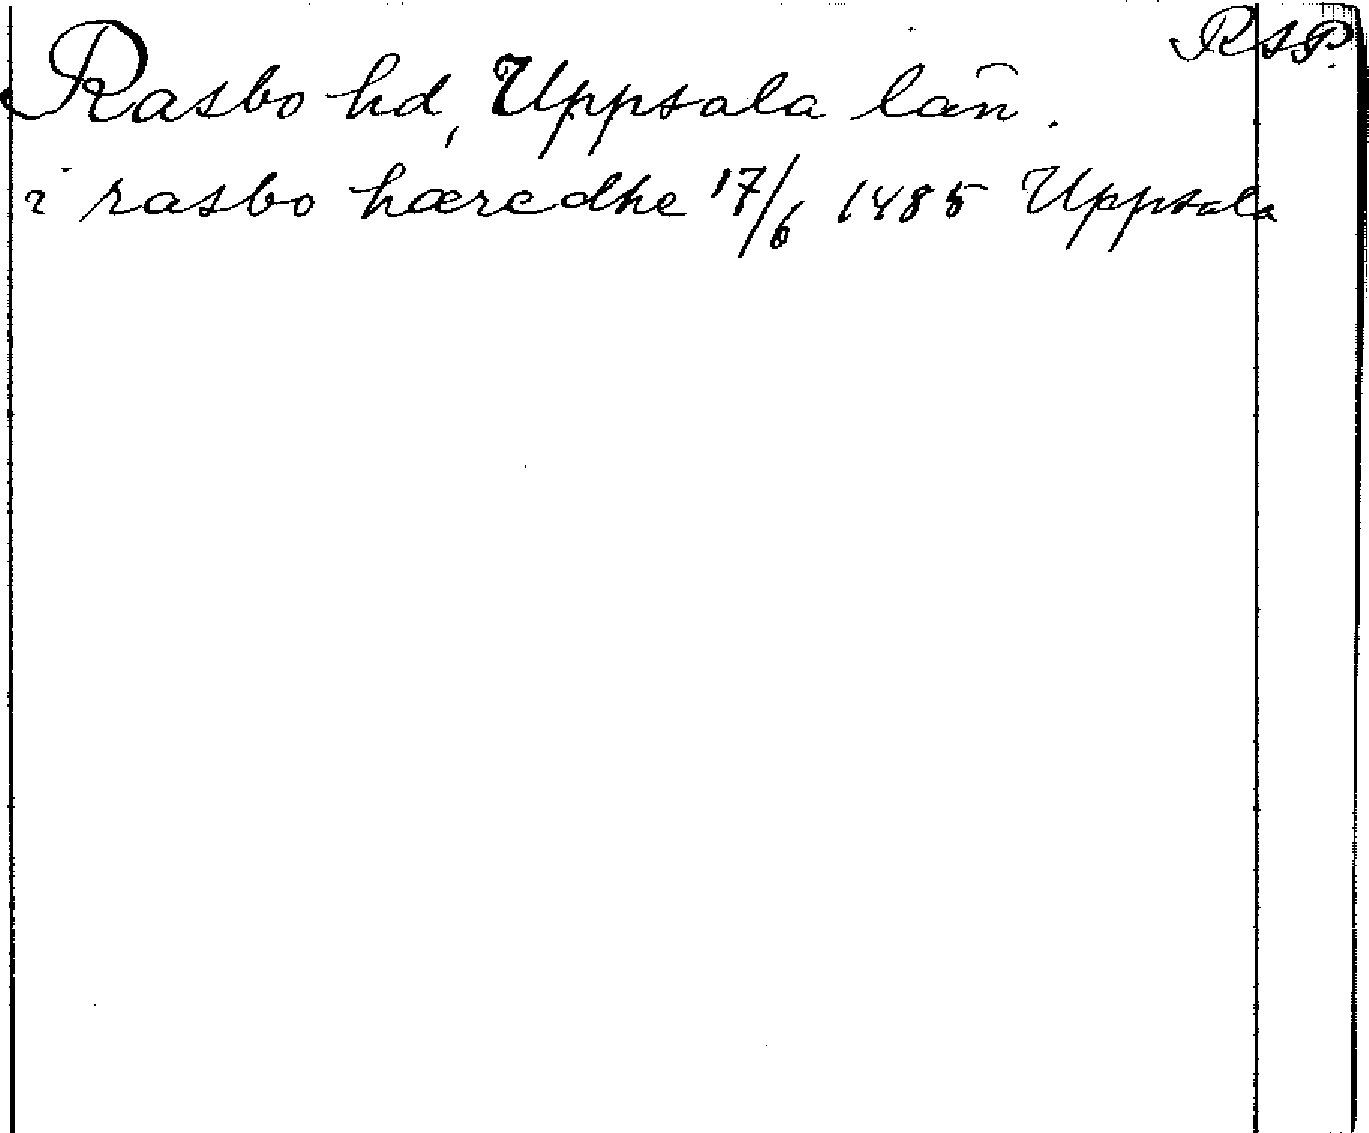 RAP.
Rasbo hd, Uppsala län.
i rasbo hæredhe 17/6 1485 Uppsala